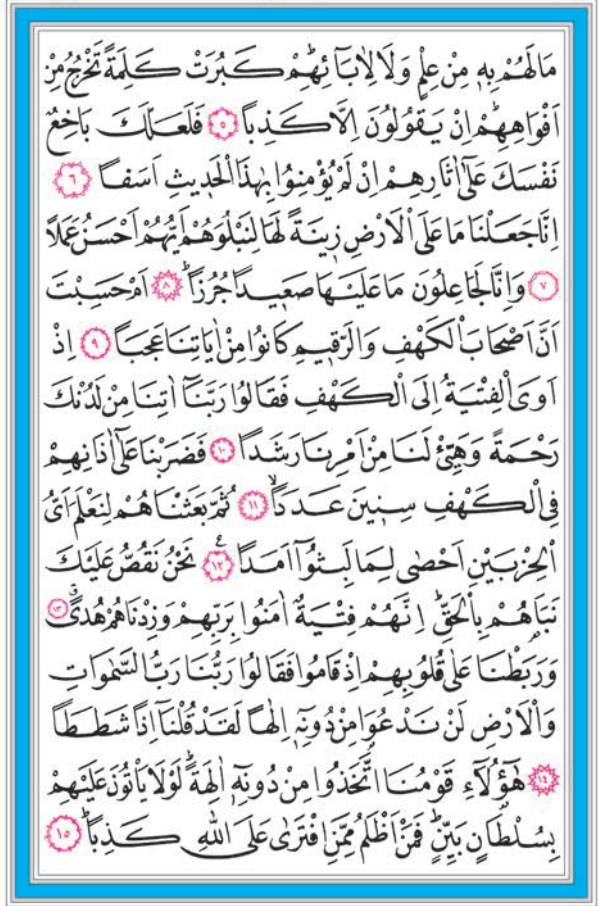 مَا لَهُمْ بِهٖ مِنْ عِلْمٍ وَلَا لِاٰبَٓائِهِمْۜ كَبُرَتْ كَلِمَةً تَخْرُجُ مِنْ
اَفْوَاهِهِمْۜ اِنْ يَقُولُونَ اِلَّا كَذِباً ﴿٥﴾ فَلَعَلَّكَ بَاخِعٌ
نَفْسَكَ عَلٰٓى اٰثَارِهِمْ اِنْ لَمْ يُؤْمِنُوا بِهٰذَا الْحَدٖيثِ اَسَفاً ﴿٦﴾
اِنَّا جَعَلْنَا مَا عَلَى الْاَرْضِ زٖينَةً لَهَا لِنَبْلُوَهُمْ اَيُّهُمْ اَحْسَنُ عَمَلاً
﴿٧﴾ وَاِنَّا لَجَاعِلُونَ مَا عَلَيْهَا صَعٖيداً جُرُزاًۜ ﴿٨﴾ اَمْ حَسِبْتَ
اَنَّ اَصْحَابَ الْكَهْفِ وَالرَّقٖيمِ كَانُوا مِنْ اٰيَاتِنَا عَجَباً ﴿٩﴾ اِذْ
اَوَى الْفِتْيَةُ اِلَى الْكَهْفِ فَقَالُوا رَبَّنَٓا اٰتِنَا مِنْ لَدُنْكَ
رَحْمَةً وَهَيِّئْ لَنَا مِنْ اَمْرِنَا رَشَداً ﴿١٠﴾ فَضَرَبْنَا عَلٰٓى اٰذَانِهِمْ
فِي الْكَهْفِ سِنٖينَ عَدَداًۙ ﴿١١﴾ ثُمَّ بَعَثْنَاهُمْ لِنَعْلَمَ اَيُّ
الْحِزْبَيْنِ اَحْصٰى لِمَا لَبِثُٓوا اَمَداً۟ ﴿١٢﴾ نَحْنُ نَقُصُّ عَلَيْكَ
نَبَاَهُمْ بِالْحَقِّۜ اِنَّهُمْ فِتْيَةٌ اٰمَنُوا بِرَبِّهِمْ وَزِدْنَاهُمْ هُدًىۗ ﴿١٣﴾
وَرَبَطْنَا عَلٰى قُلُوبِهِمْ اِذْ قَامُوا فَقَالُوا رَبُّنَا رَبُّ السَّمٰوَاتِ
وَالْاَرْضِ لَنْ نَدْعُوَ۬ا مِنْ دُونِهٖٓ اِلٰهاً لَقَدْ قُلْنَٓا اِذاً شَطَطاً
﴿١٤﴾ هٰٓؤُ۬لَٓاءِ قَوْمُنَا اتَّخَذُوا مِنْ دُونِهٖٓ اٰلِهَةًۜ لَوْلَا يَأْتُونَ عَلَيْهِمْ
بِسُلْطَانٍ بَيِّنٍۜ فَمَنْ اَظْلَمُ مِمَّنِ افْتَرٰى عَلَى اللّٰهِ كَذِباًۜ ﴿١٥﴾